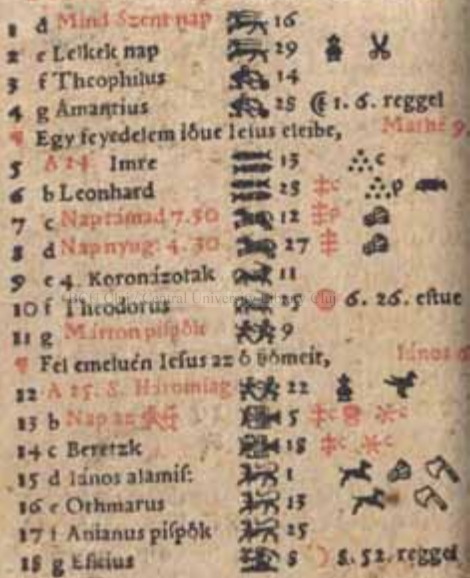 1 d Mind Szent nap 16
2 e Lelkek nap 29
3 f Theophilus 14
4 g Amantius 28 1. 6. reggel
Egy feyedelem iöue Iesus eleibe, Mathé 9.
5 A 24 Imre 13 c
6 b Leonhard 25 p
7 c Nap támad 7.30 12
8 d Nap nyug: 4. 30 27
9 e 4. Koronázotak 11
10 f Theodorus 25 6. 26. estue
11 g Márton pispök 9
Fel emeluén Iesus az ö
12 A 25. S. Háromság 22
13 b Nap az 5
14 c Beretzk 18
15 d Iános alamis: 1
16 e Othmarus 13
17 f Anianus pispök 25
18 g 8 8. 52. reggel